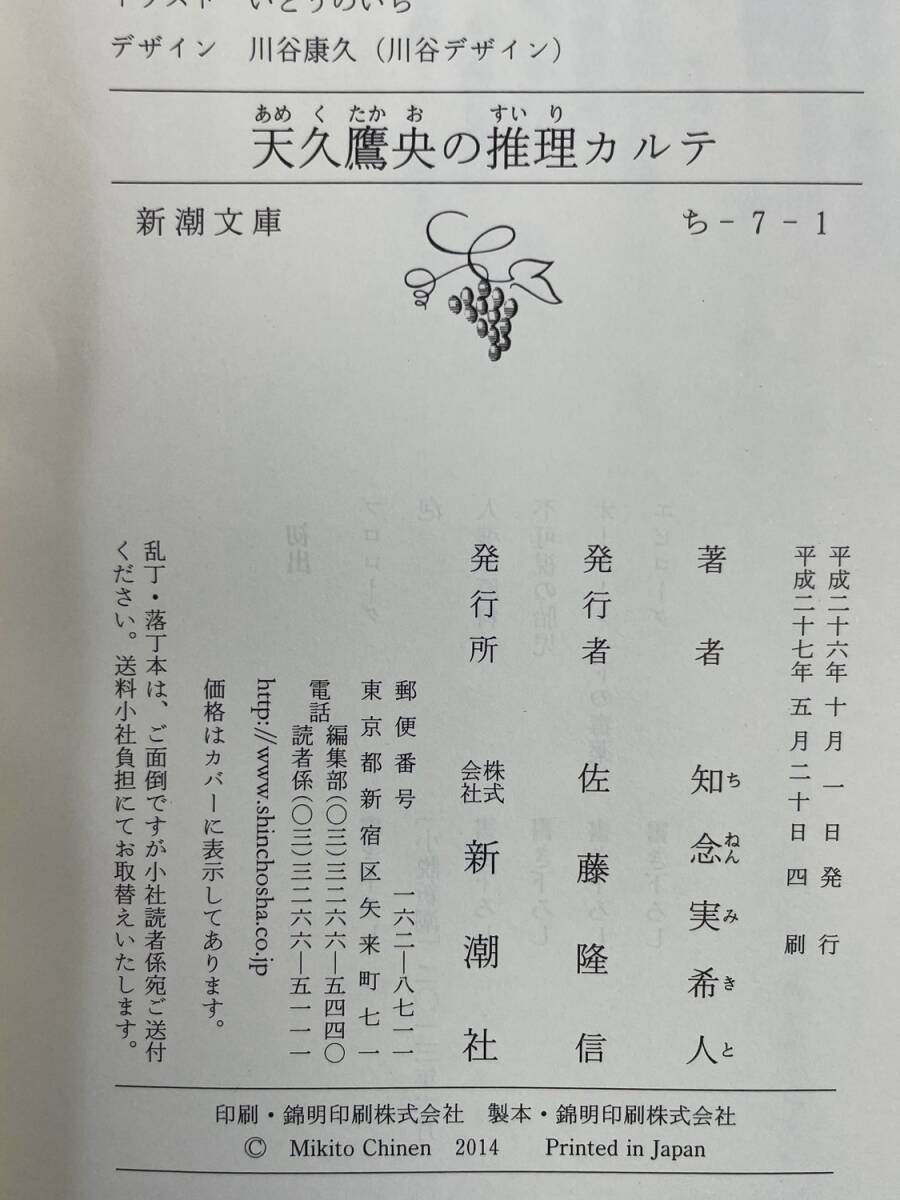 イラスト　いとうのいぢ
デザイン　川谷康久（川谷デザイン）
あめくたかお　すいり
天久鷹央の推理カルテ
新潮文庫　ち-7-1
平成二十六年十月一日発行
平成二十七年五月二十日四刷
著者　知念実希人
ちねんみきと
発行者　佐藤隆信
発行所　株式会社　新潮社
郵便番号　一六二―八七一一
東京都新宿区矢来町七一
電話　編集部(〇三)三二六六―五四四〇
読者係(〇三)三二六六―五一一一
http://www.shinchosha.co.jp
価格はカバーに表示してあります。
乱丁・落丁本は、ご面倒ですが小社読者係宛ご送付
ください。送料小社負担にてお取替えいたします。
印刷・錦明印刷株式会社　製本・錦明印刷株式会社
© Mikito Chinen 2014　Printed in Japan